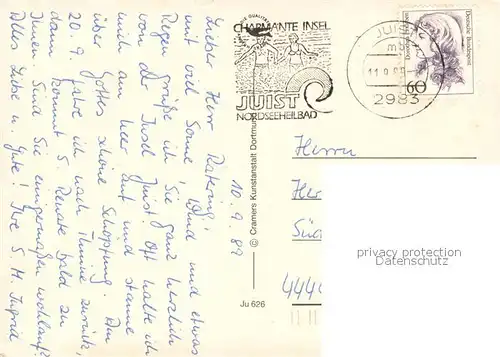 10.9.89
Lieber Herr
mit viel Sonne, Wind und etwas
Regen grüße ich Sie ganz herzlich
von der Insel Juist. Oft halte ich
mich am Meer auf und staune
über Gottes schöne Schöpfung. Am
20.9. fahre ich nach Thuine zurück,
dann kommt S. Renate bald zu
Ihnen. Sind Sie einigermaßen wohlauf?
Alles Liebe u. Gute! Ihre S. M. Ingrid
© Cramers Kunstanstalt Dortmund
Ju 626
CHARMANTE INSEL
JUIST
NORDSEEHEILBAD
JUIST
2983
Deutsche Bundespost
60
Herrn
privacy protection
Datenschutz
444